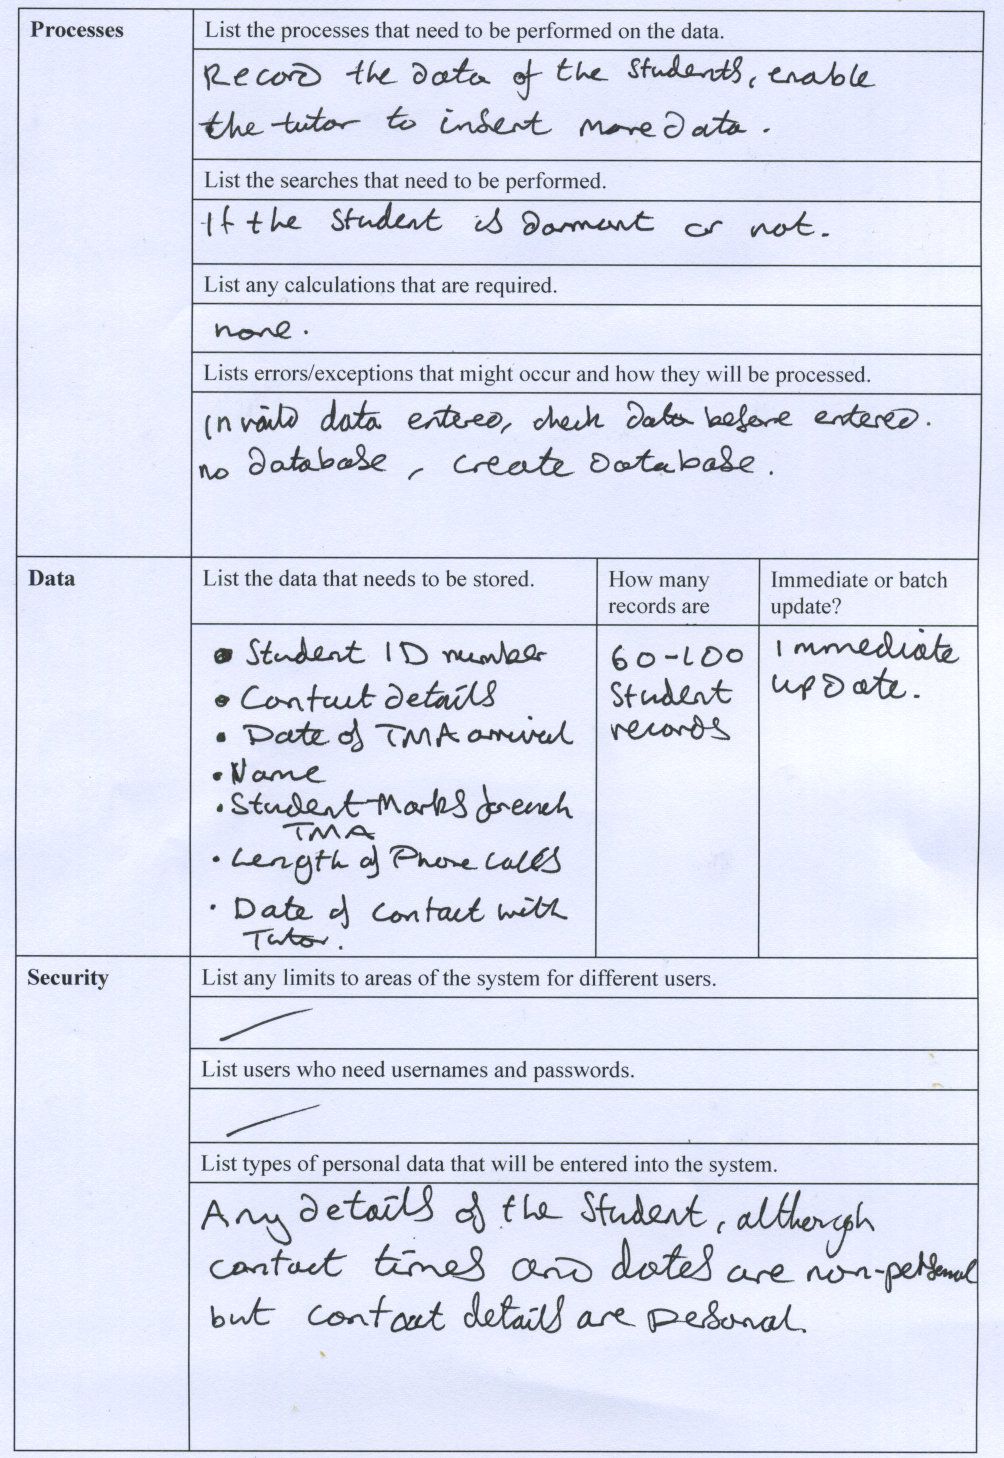 Processes
List the processes that need to be performed on the data.
Record the data of the students, enable
the tutor to insert more data.
List the searches that need to be performed.
If the student is dormant or not.
List any calculations that are required.
none.
Lists errors/exceptions that might occur and how they will be processed.
invaild data entered, check data before entered.
no database, create database.
Data
List the data that needs to be stored.
How many
records are
Immediate or batch
update?
• Student ID number
• Contact details
• Date of TMA arrival
• Name
• Student Marks for each
TMA
• Length of Phone calls
• Date of contact with
Tutor.
60-100
Student
records
Immediate
update.
Security
List any limits to areas of the system for different users.
List users who need usernames and passwords.
List types of personal data that will be entered into the system.
Any details of the student, although
contact times and dates are non-personal
but contact details are pesonal.